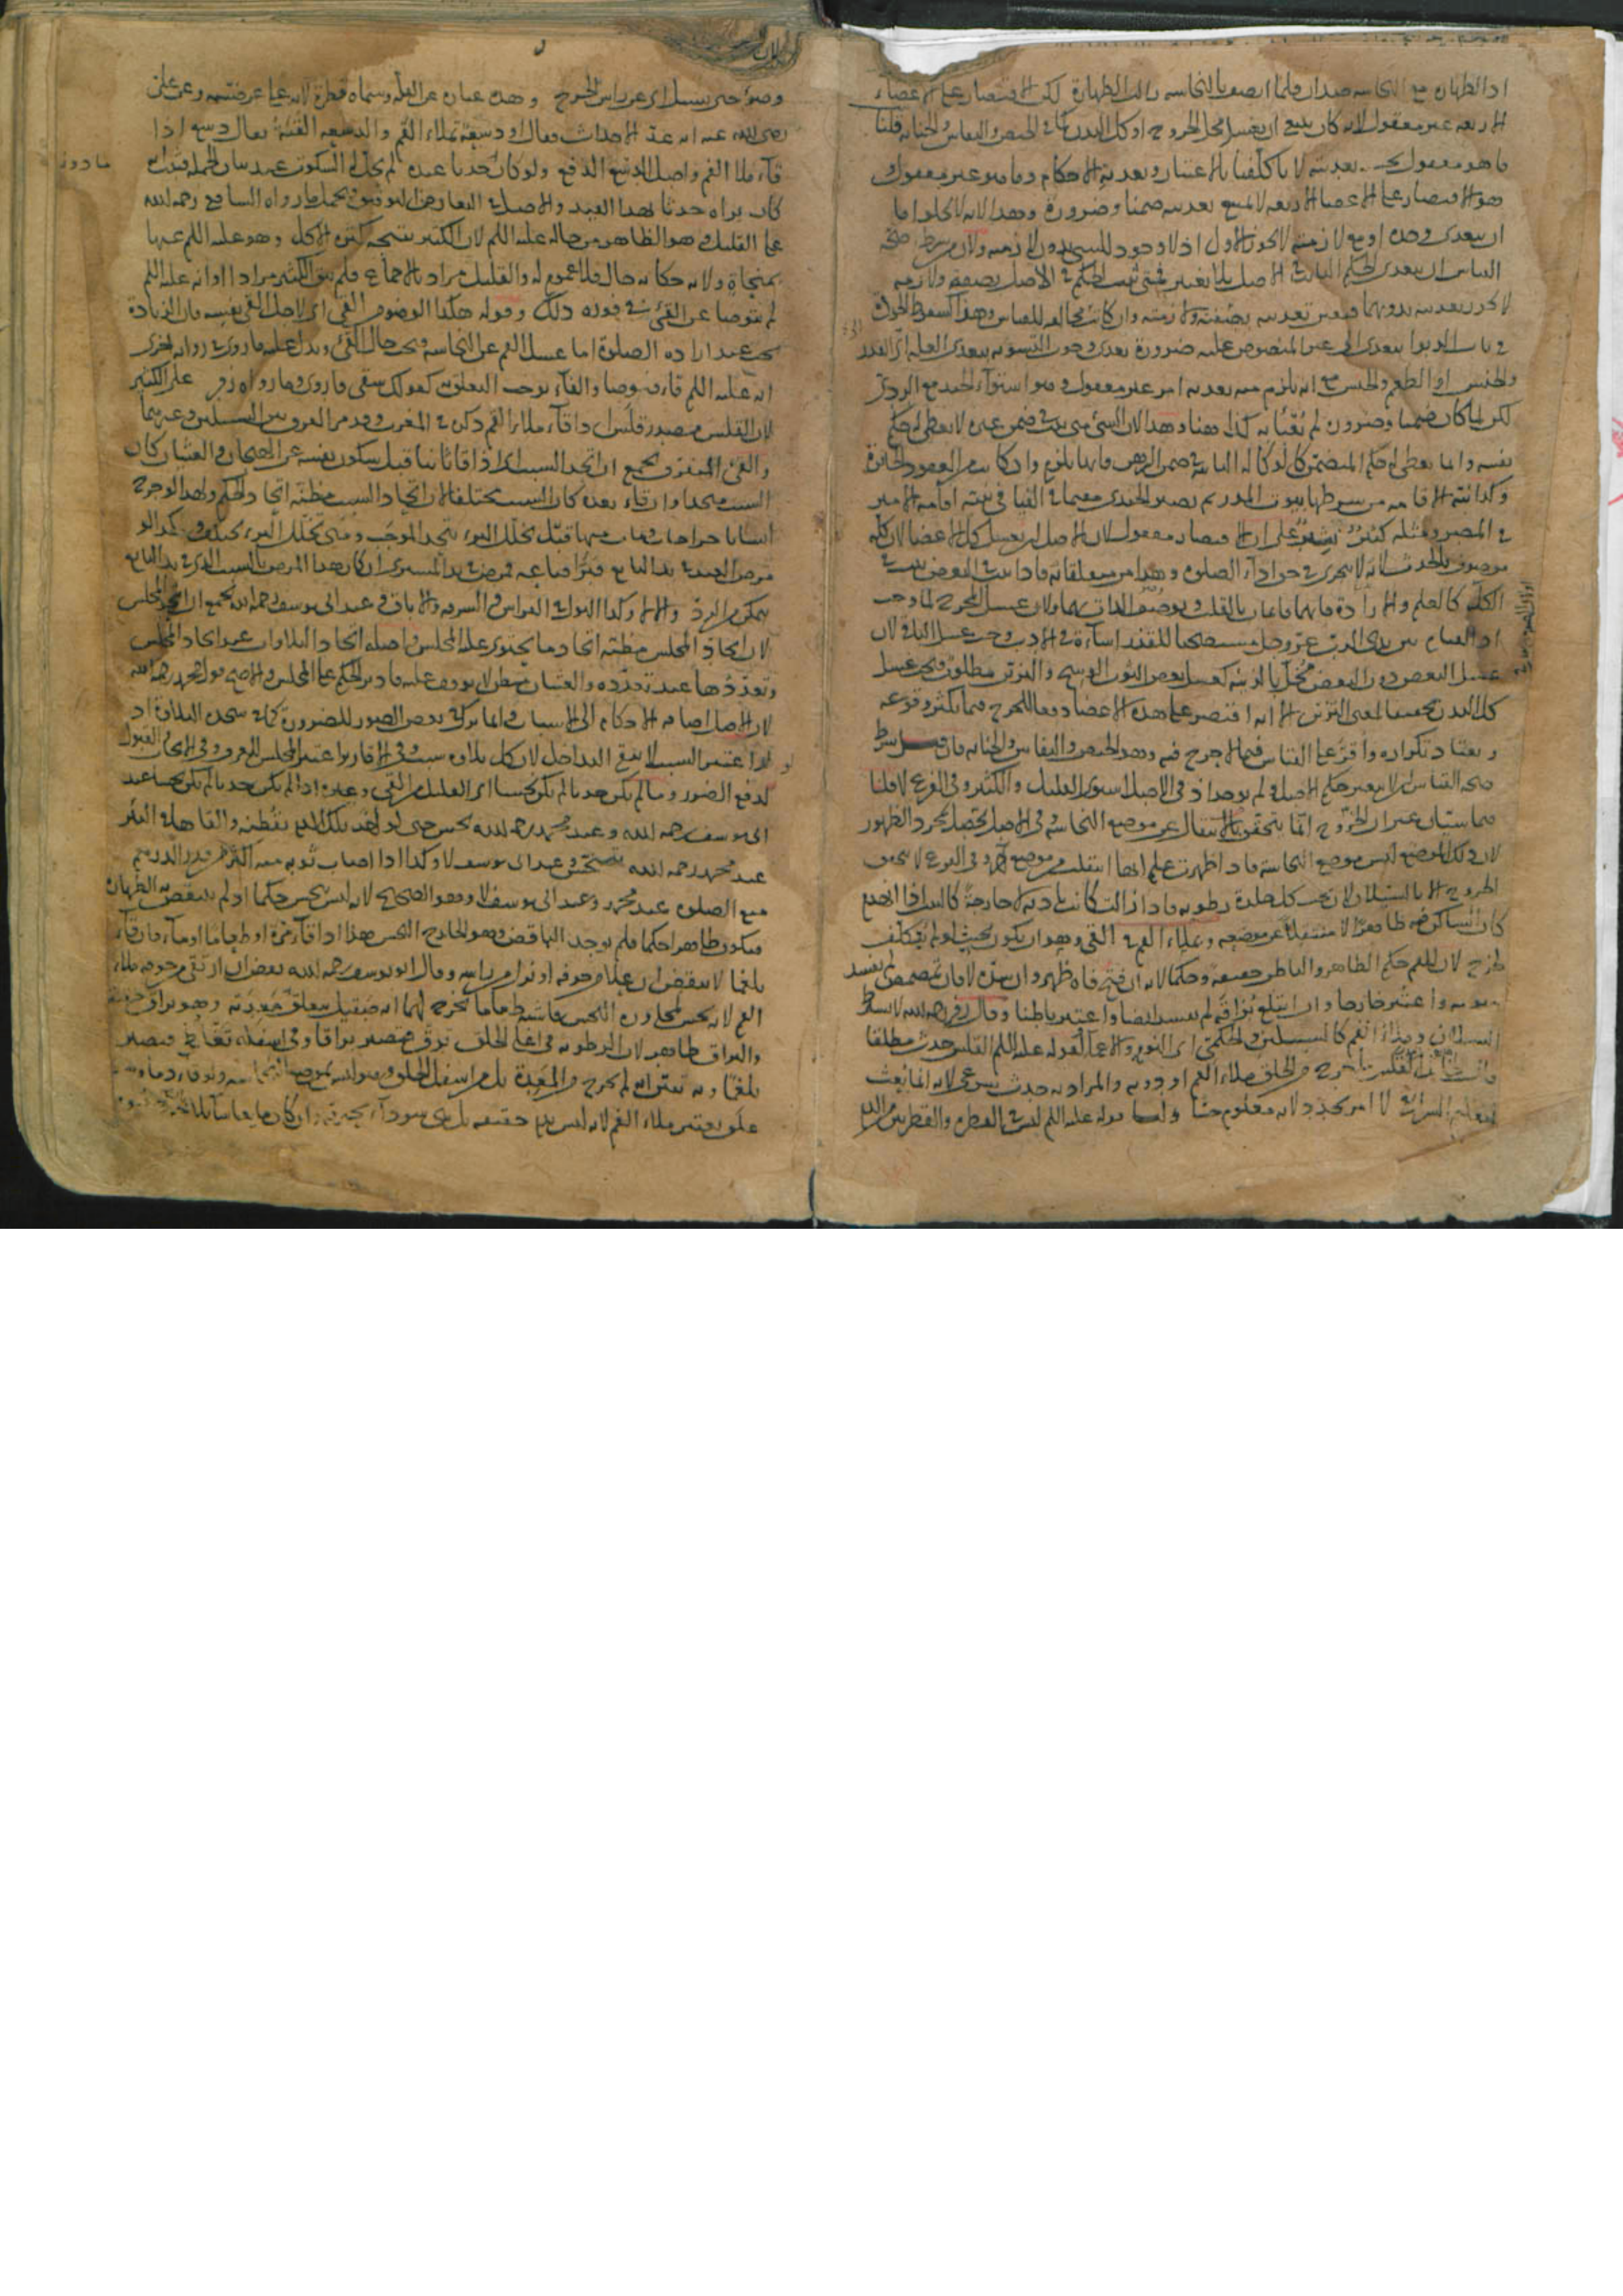 اذ الطهارة مع النجاسة ضدان فلما اتصف بالنجاسة زالت الطهارة لكن الاقتصار على الاعضاء
الاربعة غير معقول لانه كان ينبغي ان يغسل محل الخروج او كل البدن كما في الحيض والنفاس والجنابة قلنا
ما هو معقول تعديته لانا كلفنا بالاعتبار وتعدية الاحكام وما هو غير معقول
هو الاقتصار على الاعضاء الاربعة لا يمنع تعديته ضمنا وضرورة وهذا لانه لا يخلو اما
ان يتعدى وحده او مع لازمه لا يجوز الاول اذ لا وجود للشيء بدون لازمه ولان من شرط صحة
القياس ان يتعدى الحكم الثابت في الاصل بلا تغيير فمتى ثبت الحكم في الاصل بصفة ولازمه
لا يجوز تعديته بدونهما فتعين تعديته بصفته ولازمته وان كانت مخالفة للقياس
في باب الربوا يتعدى الى غير المنصوص عليه ضرورة تعدي وجوب التسوية بتعدي العلة اي القدر
والجنس او الطعم والجنس مع انه يلزم منه تعدية امر غير معقول وهو استواء الجيد مع الردي
لكن لما كان ضمنا وضرورة لم يعبأ به كذا ههنا وهذا لان الشيء متى يثبت في ضمن غيره لا يعطى له حكم
نفسه وانما يعطى له حكم المتضمن كالوكالة الثابتة في ضمن الرهن فانها تلزم وان كانت من العقود الجائزة
وكذا نية الاقامة من شرطها بيوت المدر ثم يصير الجندي مقيما في الفيافي بنية اقامة الامير
في المصر ومثله كثير على ان الاقتصار معقول لان الاصل ان يغسل كل الاعضاء لان كله
موصوف بالحدث لانه لا يتجزى في حق اداء الصلوة وهذا من متعلقاته فاذا ثبت في البعض يثبت في
الكل كالعلم والارادة فانهما قائمان بالقلب ويوصف الذات بهما ولان غسل المخرج لما وجب
اذ القيام بين يدي الرب عز وجل مستصحبا للقذر اساءة في الادب وجب غسل الباقي لان
غسل البعض دون البعض مخل بالزينة كغسل بعض الثوب الوسخ والتزين مطلوب فيجب غسل
كل البدن تحقيقا لمعنى التزين الا انه اقتصر على هذه الاعضاء دفعا للحرج فيما يكثر وقوعه
ويعتاد تكراره واقر على القياس فيما لا حرج فيه وهو الحيض والنفاس والجنابة فان قيل شرط
صحة القياس ان لا يتغير حكم الاصل ولم يوجد اذ في الاصل استوى القليل والكثير وفي الفرع لا قلنا
هما سيان غير ان الخروج انما يتحقق بالانتقال عن موضع النجاسة وفي الاصل يحصل بمجرد الظهور
لان ذلك الموضع ليس موضع النجاسة فاذا ظهرت علم انها انتقلت من موضع آخر وفي الفرع لا يتحقق
الخروج الا بالسيلان لان تحت كل جلدة رطوبة فاذا زالت كانت بادية لا خارجة كالبيت اذا انهدم
كان الساكن فيه ظاهرا لا منتقلا عن موضعه وبملاء الفم في القيء وهو ان يكون بحيث لو لم يتكلف
لخرج لان للفم حكم الظاهر والباطن حقيقة وحكما لانه ان فتح فاه ظهر وان ستره لا فان تمضمض لم يفسد
صومه واعتبر خارجا وان ابتلع بزاقه لم يفسد ايضا واعتبر باطنا وقال زفر رحمه الله لا يشترط
السيلان وملاء الفم كالسبيلين والحكمي اي النوم والاغماء لقوله عليه السلم القلس حدث مطلقا
القلس ما خرج من الحلق ملاء الفم او دونه والمراد به حدث شرعي لانه انما بعث
لتعليم الشرائع لا امر لانه معلوم حسا ولنا قوله عليه السلم ليس في القطرة والقطرتين من الدم
وضوء حتى يسيل اي عن راس الجرح وهذه عبارة عن القلة وسماه قطرة لانه على عرضيته وعن علي
رضي الله عنه انه عد الاحداث فقال او دسعة تملاء الفم والدسعة القيئة يقال دسع اذا
قاء ملا الفم واصل الدسع الدفع ولو كان حدثا عنده لم يحل له السكوت عند بيان الجملة فثبت انه
كان يراه حدثا بهذا القيد والاصل في التعارض التوفيق فيحمل ما رواه الشافعي رحمه الله
على القليل وهو الظاهر من حاله عليه السلم لان الكثير نتيجة كثرة الاكل وهو عليه السلم عنها
بمنجاة ولانه حكاية حال فلا عموم له والقليل مراد بالاجماع فلم يبق الكثير مرادا او انه عليه السلم
لم يتوضا عن القيء في فوره ذلك وقوله هكذا الوضوء من القيء اي لاجل القيء نفسه فان الزيادة
تجب عند ارادة الصلوة اما غسل الفم عن النجاسة فيجب حال القيء ويدل عليه ما روي في رواية اخرى
انه عليه السلم قاء فتوضا والفاء توجب التعليق كقولك سقى فاروى وما رواه زفر على الكثير
لان القلس مصدر قلس اذا قاء ملاء الفم ذكره في المغرب وقد مر الفرق بين السبيلين وغيرهما
والقيء المتفرق يجمع ان اتحد السبب اي اذا قاء ثانيا قبل سكون نفسه عن الهيجان والغثيان كان
السبب متحدا وان قاء بعده كان السبب مختلفا لان اتحاد السبب مظنة اتحاد الحكم ولهذا لو جرح
انسانا جراحات فمات منها قبل تخلل البرء يتحد الموجب ومتى تخلل البرء يختلف وكذا لو
مرض العبد في يد البائع فبرأ فباعه فمرض في يد المشتري ان كان هذا المرض بالسبب الذي في يد البائع
يتمكن من الرد والا لا وكذا البول في الفراش والسرقة والاباق وعند ابي يوسف رحمه الله يجمع ان اتحد المجلس
لان اتحاد المجلس مظنة اتحاد ما يحتوي عليه المجلس واصله اتحاد التلاوات عند اتحاد المجلس
وتعددها عند تعدده والغثيان مبطن لا يوقف عليه فادير الحكم على المجلس والاصح قول محمد رحمه الله
لان الاصل اضافة الاحكام الى الاسباب وانما ترك في بعض الصور للضرورة كما في سجدة التلاوة اذ
لو اعتبر السبب لانتفى التداخل لان كل تلاوة سبب وفي الاقارير اعتبر المجلس للعرف وفي الايجاب القبول
لدفع الضرر وما لم يكن حدثا لم يكن نجسا اي القليل من القيء وغيره اذا لم يكن حدثا لم يكن نجسا عند
ابي يوسف رحمه الله وعند محمد رحمه الله نجس حتى لو اخذ ذلك الدم بقطنة والقاها في البئر
عند محمد رحمه الله تتنجس وعند ابي يوسف لا وكذا اذا اصاب ثوبه منه اكثر من قدر الدرهم
منع الصلوة عند محمد وعند ابي يوسف لا وهو الصحيح لانه ليس بنجس حكما اذ لم ينتقض به الطهارة
فيكون طاهرا حكما فلم يوجد الناقض وهو الخارج النجس هذا اذا قاء مرة او طعاما او ماء فان قاء
بلغما لا ينقض ان علا من جوفه او نزل من راسه وقال ابو يوسف رحمه الله ينقض ان ارتقى من جوفه ملاء
الفم لانه نجس لمجاورة النجس فاشبه طعاما يخرج لهما انه صقيل معدته وهو بزاق حقيقة
والبزاق طاهر لان الرطوبة في اعلى الحلق ترق فتصير بزاقا وفي اسفله تغلظ فتصير
بلغما وبه تبين انه لم يخرج من المعدة بل من اسفل الحلق وهو ليس بموضع النجاسة ولو قاء دما وهو
علق يعتبر ملاء الفم لانه ليس بدم حقيقة بل هي سوداء محترقة وان كان مايعا
ما دون